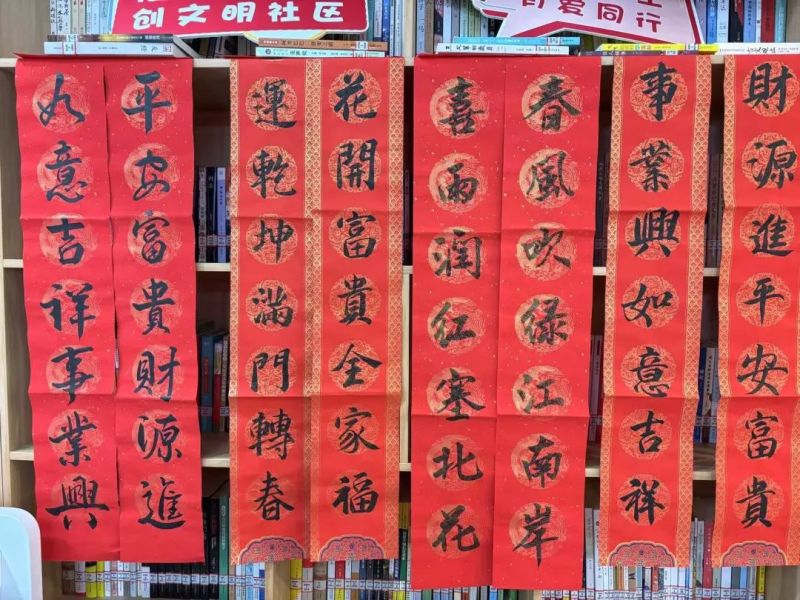 创文明社区
爱同行
財源進平安富貴
事業興如意吉祥
春風吹绿江南岸
喜雨润红塞北花
花開富貴全家福
運乾坤滿門轉春
平安富貴財源進
如意吉祥事業興